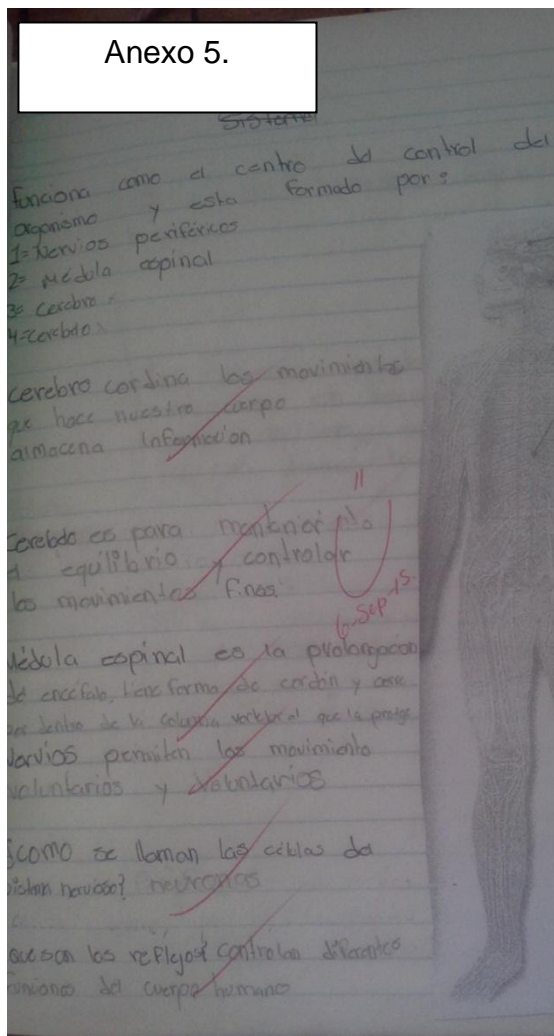 Anexo 5.
Sistema
funciona como el centro del control del
organismo y esta formado por:
1= Nervios periféricos
2= Médula espinal
3= cerebro:
4=cerebelo:
cerebro cordina los movimientos
que hace nuestro cuerpo
almacena información
cerebelo es para mantener
el equilibrio y controlar
los movimientos finos.
6-Sep-15.
Médula espinal es la prolongación
del encéfalo, tiene forma de cordón y corre
por dentro de la columna vertebral que la protege
Nervios permiten los movimiento
voluntarios y
¿como se llaman las células del
nervioso? neuronas
que son los reflejos? controlan diferentes
funciones del cuerpo humano